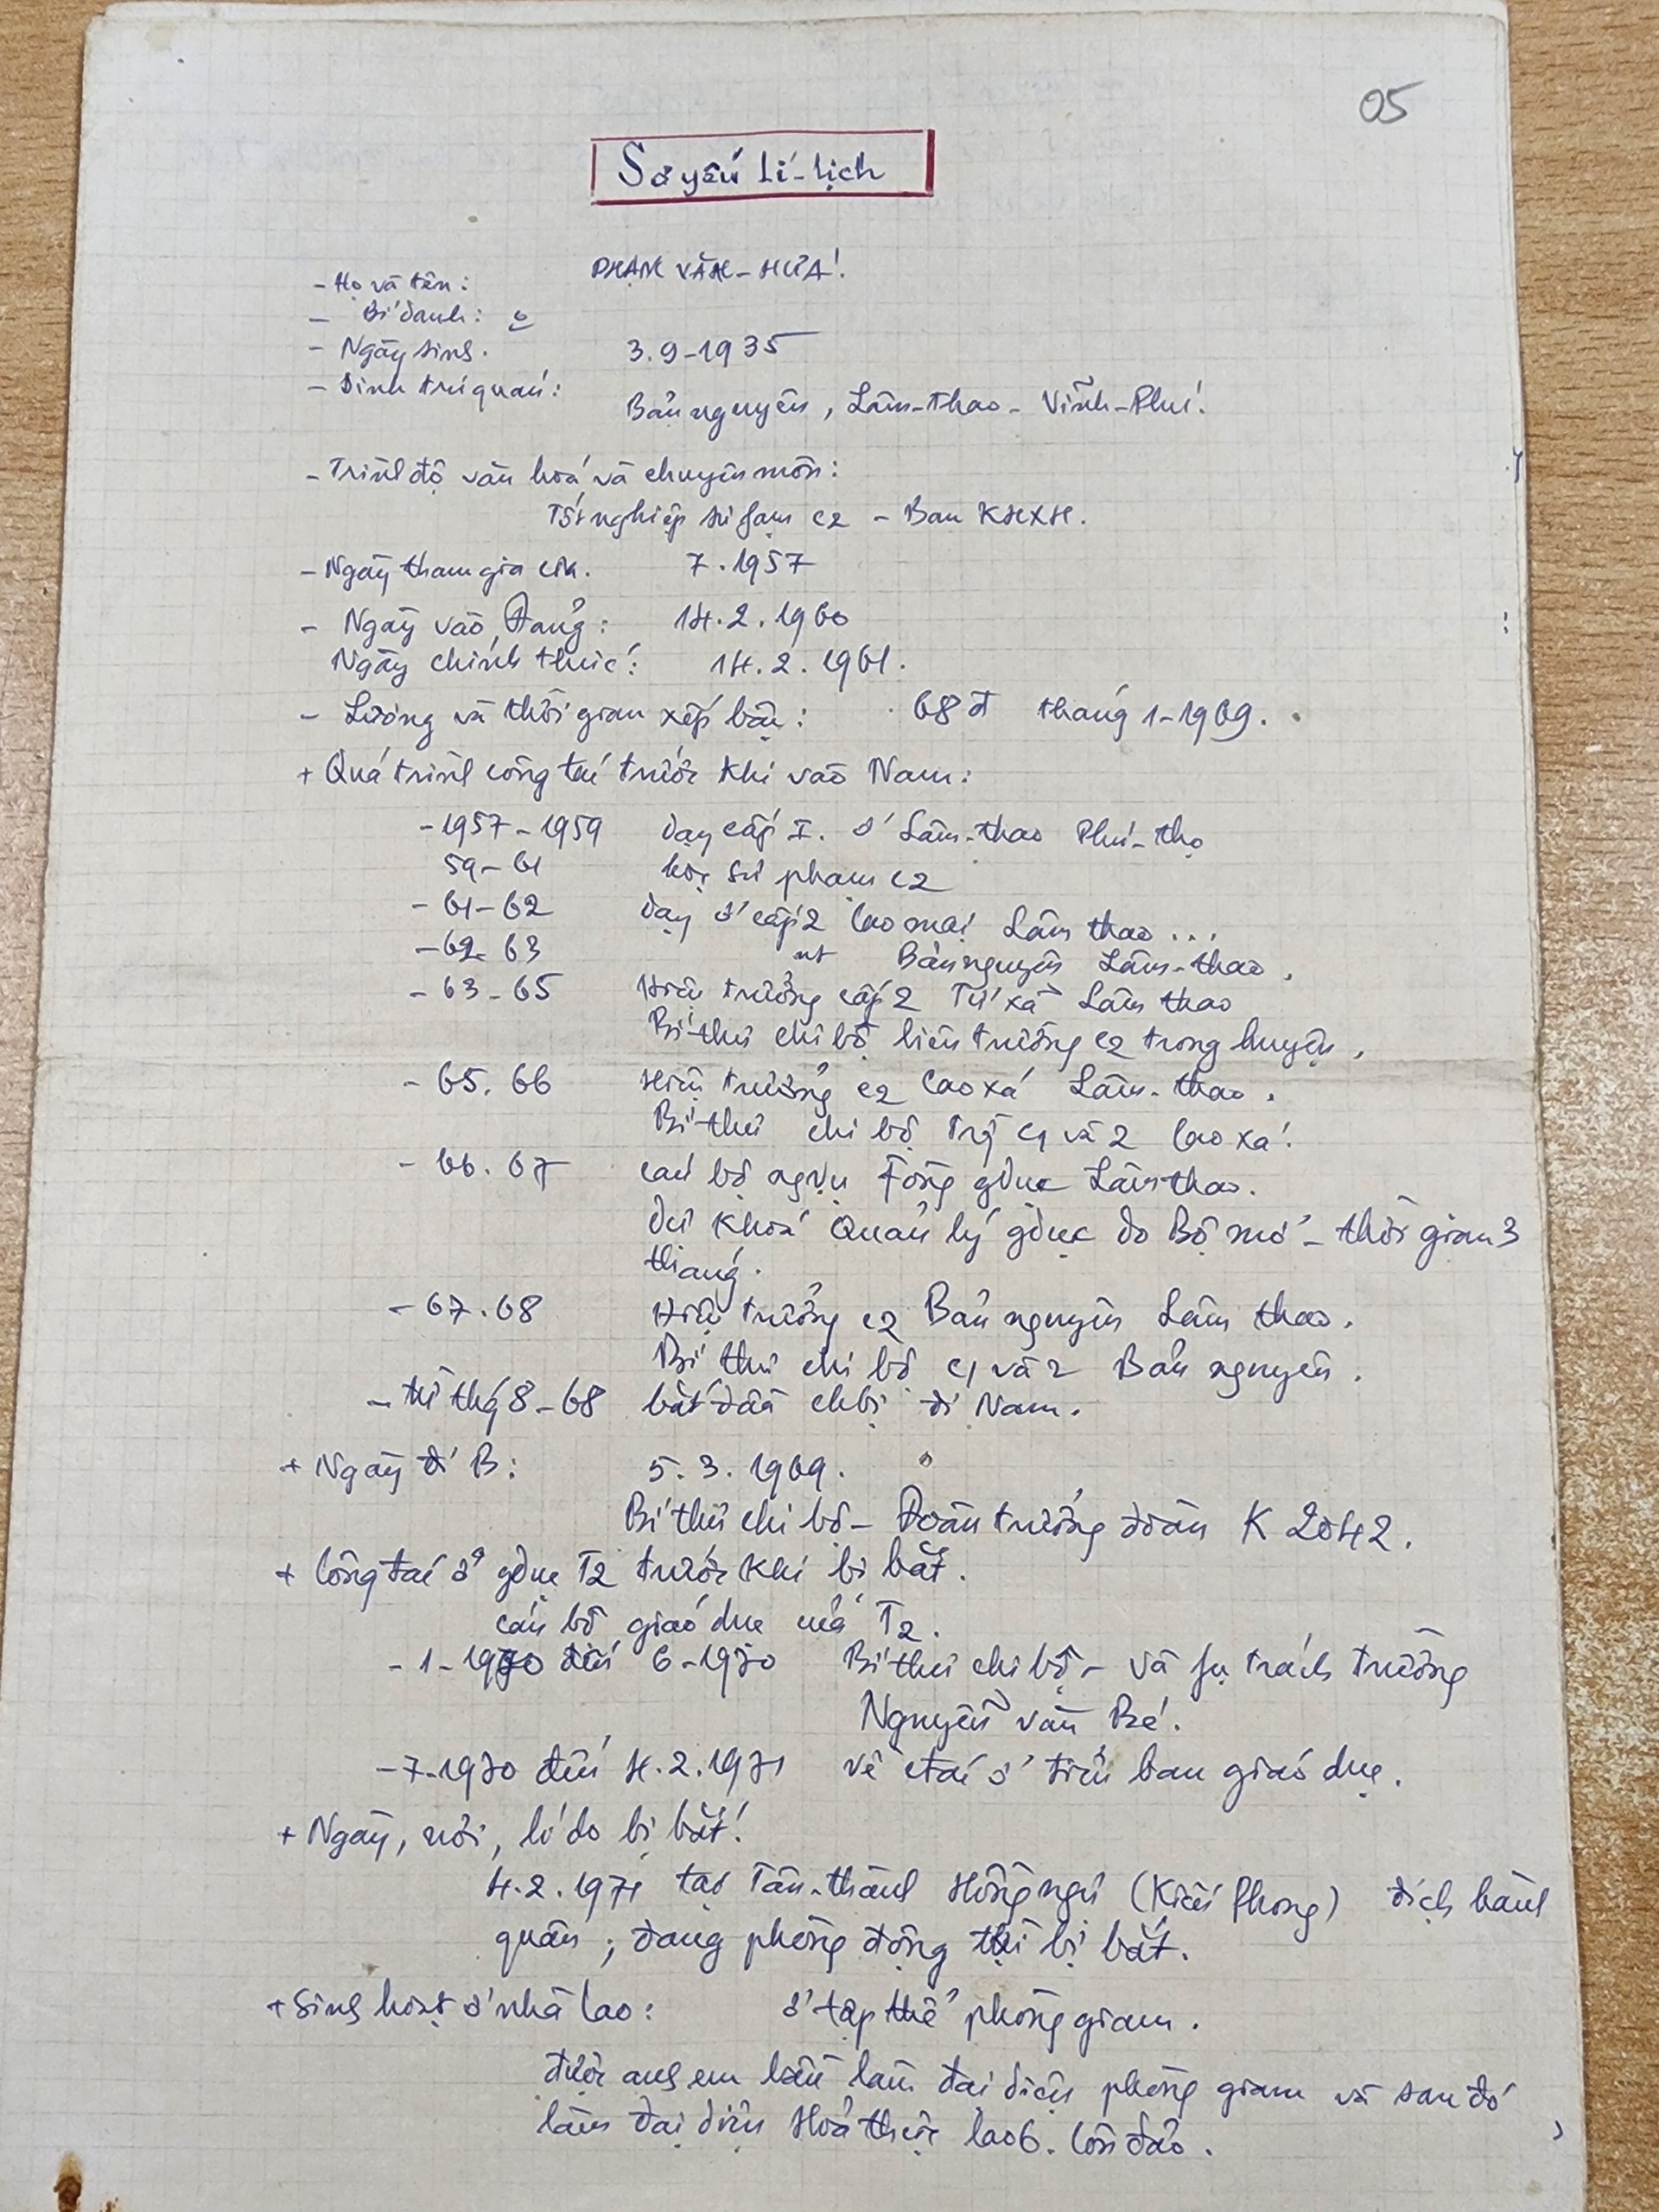 05
Sơ yếu lí-lịch
- Họ và tên: PHẠM VĂN-HỨA!
- Bí danh: o
- Ngày sinh. 3.9-1935
- Sinh trú quán:
Bản nguyên, Lâm-thao - Vĩnh-Phú.
- Trình độ văn hoá và chuyên môn:
Tốt nghiệp sư fạm c2 - Ban KHXH.
- Ngày tham gia CM. 7.1957
- Ngày vào Đảng: 14.2.1960
Ngày chính thức: 14.2.1961.
- Lương và thời gian xếp bậc: 68đ tháng 1-1969.
+ Quá trình công tác trước khi vào Nam:
- 1957-1959 dạy cấp I. ở Lâm-thao Phú-thọ
59-61 học sư phạm c2
- 61-62 dạy ở cấp 2 Cao mại Lâm thao ...
- 62-63 nt Bản nguyên Lâm-thao.
- 63-65 Hiệu trưởng cấp 2 Tứ xã Lâm thao
Bí thư chi bộ liên trường c2 trong huyện.
- 65.66 Hiệu trưởng c2 Cao xá Lâm-thao.
Bí thư chi bộ Trg c1 và 2 Cao xá.
- 66.67 cán bộ ngvụ Fòng gdục Lâm thao.
Dự khoá Quản lý gdục do Bộ mở - thời gian 3
tháng.
- 67.68 Hiệu trưởng c2 Bản nguyên Lâm thao.
Bí thư chi bộ c1 và 2 Bản nguyên.
- từ thg 8-68 bắt đầu chbị đi Nam.
+ Ngày đi B: 5.3.1969.
Bí thư chi bộ - Đoàn trưởng đoàn K 2042.
+ Công tác ở gdục T2 trước khi bị bắt.
cán bộ giáo dục của T2.
- 1-1970 đến 6-1970 Bí thư chi bộ - và fụ trách trường
Nguyễn văn Bé.
- 7-1970 đến 4.2.1971 về ctác ở tiểu ban giáo dục.
+ Ngày, nơi, lí do bị bắt!
4.2.1971 tại Tân-thành Hồng ngự (Kiến Phong) địch hành
quân; đang phòng động thì bị bắt.
+ Sinh hoạt ở nhà lao: ở tập thể phòng giam.
được anh em bầu làm đại diện phòng giam và sau đó
làm đại diện Hoả thực lao 6. Côn đảo.